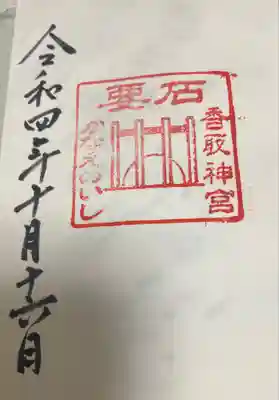 香取神宮
石要
かなえめいし
令和四年十月十六日